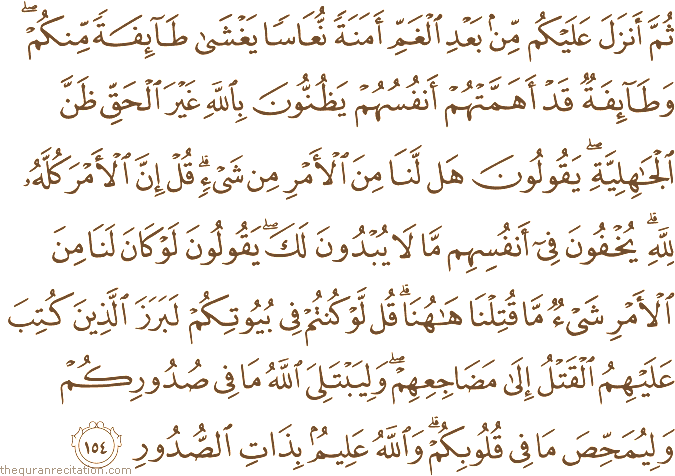 ثُمَّ أَنزَلَ عَلَيْكُم مِّنۢ بَعْدِ ٱلْغَمِّ أَمَنَةً نُّعَاسًا يَغْشَىٰ طَآئِفَةً مِّنكُمْ ۖ
وَطَآئِفَةٌ قَدْ أَهَمَّتْهُمْ أَنفُسُهُمْ يَظُنُّونَ بِٱللَّهِ غَيْرَ ٱلْحَقِّ ظَنَّ
ٱلْجَٰهِلِيَّةِ ۖ يَقُولُونَ هَل لَّنَا مِنَ ٱلْأَمْرِ مِن شَىْءٍ ۗ قُلْ إِنَّ ٱلْأَمْرَ كُلَّهُۥ
لِلَّهِ ۗ يُخْفُونَ فِىٓ أَنفُسِهِم مَّا لَا يُبْدُونَ لَكَ ۖ يَقُولُونَ لَوْ كَانَ لَنَا مِنَ
ٱلْأَمْرِ شَىْءٌ مَّا قُتِلْنَا هَٰهُنَا ۗ قُل لَّوْ كُنتُمْ فِى بُيُوتِكُمْ لَبَرَزَ ٱلَّذِينَ كُتِبَ
عَلَيْهِمُ ٱلْقَتْلُ إِلَىٰ مَضَاجِعِهِمْ ۖ وَلِيَبْتَلِىَ ٱللَّهُ مَا فِى صُدُورِكُمْ
وَلِيُمَحِّصَ مَا فِى قُلُوبِكُمْ ۗ وَٱللَّهُ عَلِيمٌۢ بِذَاتِ ٱلصُّدُورِ ١٥٤
thequranrecitation.com